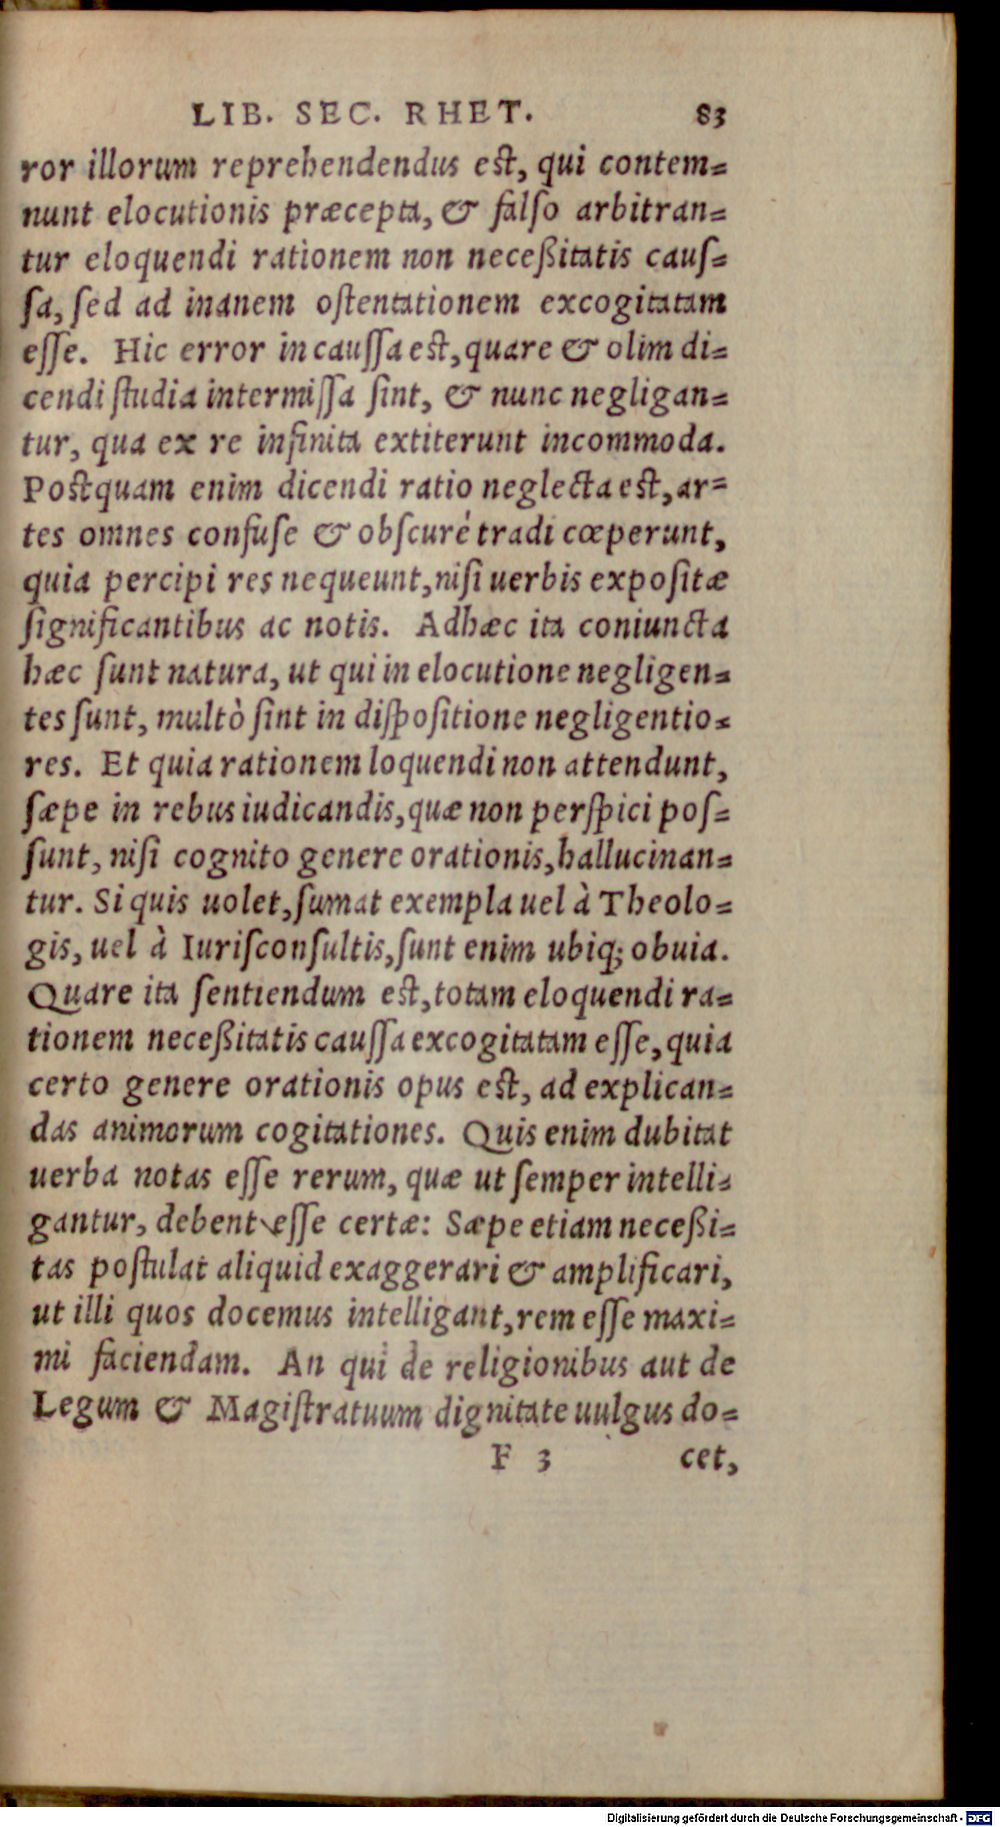 LIB. SEC. RHET. 83
ror illorum reprehendendus est, qui contem=
nunt elocutionis præcepta, & falſo arbitran=
tur eloquendi rationem non neceßitatis cauſ=
ſa, ſed ad inanem oſtentationem excogitatam
eſſe. Hic error in cauſſa est, quare & olim di=
cendi ſtudia intermiſſa ſint, & nunc negligan=
tur, qua ex re infinita extiterunt incommoda.
Postquam enim dicendi ratio neglecta est, ar=
tes omnes confuſe & obſcurè tradi cœperunt,
quia percipi res nequeunt, niſi uerbis expoſitæ
ſignificantibus ac notis. Adhæc ita coniuncta
hæc ſunt natura, ut qui in elocutione negligen=
tes ſunt, multò ſint in diſpoſitione negligentio=
res. Et quia rationem loquendi non attendunt,
ſæpe in rebus iudicandis, quæ non perſpici poſ=
ſunt, niſi cognito genere orationis, hallucinan=
tur. Si quis uolet, ſumat exempla uel à Theolo=
gis, uel à Iuriſconſultis, ſunt enim ubiq; obuia.
Quare ita ſentiendum est, totam eloquendi ra=
tionem neceßitatis cauſſa excogitatam eſſe, quia
certo genere orationis opus est, ad explican=
das animorum cogitationes. Quis enim dubitat
uerba notas eſſe rerum, quæ ut ſemper intelli=
gantur, debent eſſe certæ: Sæpe etiam neceßi=
tas poſtulat aliquid exaggerari & amplificari,
ut illi quos docemus intelligant, rem eſſe maxi=
mi faciendam. An qui de religionibus aut de
Legum & Magiſtratuum dignitate uulgus do=
F 3 cet,
Digitalisierung gefördert durch die Deutsche Forschungsgemeinschaft - DFG